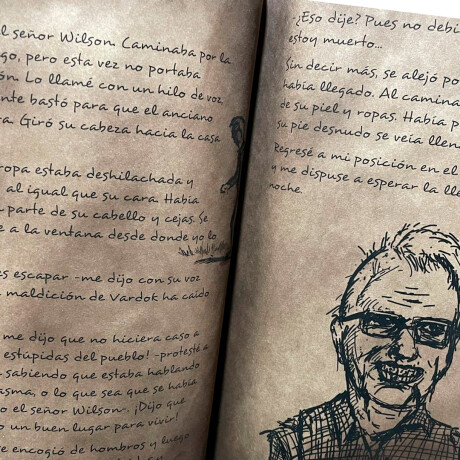 l señor Wilson Caminaba por la
go, pero esta vez no portaba
ón. Lo llamé con un hilo de voz,
nte bastó para que el anciano
a. Giró su cabeza hacia la casa
ropa estaba deshilachada y
al igual que su cara. Había
parte de su cabello y cejas. Se
e a la ventana desde donde yo lo
es escapar -me dijo con su voz
maldición de Vardok ha caído
me dijo que no hiciera caso a
estúpidas del pueblo! -protesté a
sabiendo que estaba hablando
asma, o lo que sea que se había
o el señor Wilson-. ¡Dijo que
o un buen lugar para vivir!
e encogió de hombros y luego
-¿Eso dije? Pues no debí
estoy muerto...
Sin decir más, se alejó po
había llegado. Al camina
de su piel y ropas. Había p
su pie desnudo se veía llen
Regresé a mi posición en el
y me dispuse a esperar la lle
noche.